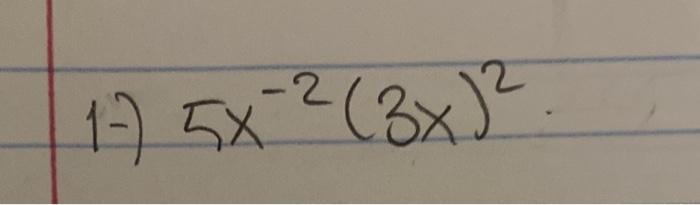 1-) 5x⁻²(3x)².